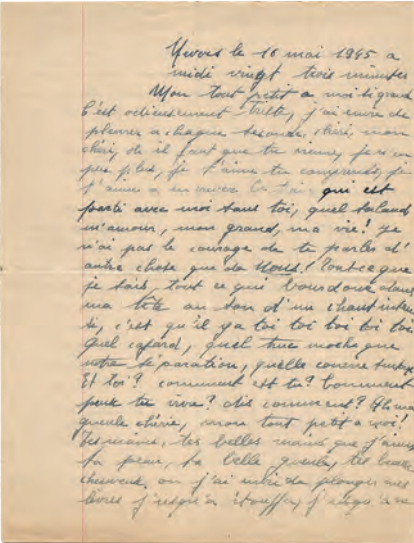 le 16 mai 1945 a
midi vingt trois minutes
Mon tout petit a moi si grand
C'est odieusement triste, j'ai envie de
pleurer a chaque seconde, chéri, mon
chéri, oh il faut que tu viennes, je n'en
peux plus, je t'aime tu comprends, je
t'aime a en crever le qui est
parti avec moi sans toi, quel salaud
m'amour, mon grand, ma vie! je
n'ai pas le courage de te parler d'
autre chose que de Nous! Tout ce que
je sais, tout ce qui dans
ma tête au son d'un chant
c'est qu'il y a toi toi toi toi toi
quel cafard, quel truc moche que
notre séparation, quelle
Et toi? comment est tu? Comment
peux tu vivre? dis comment? Oh ma
gueule chérie, mon tout petit a moi!
Tes mains, tes belles mains que j'aime
ta peau, ta belle gueule, tes beaux
cheveux ou j'ai envie de plonger mes
lèvres jusqu'a étouffer, jusqu'a